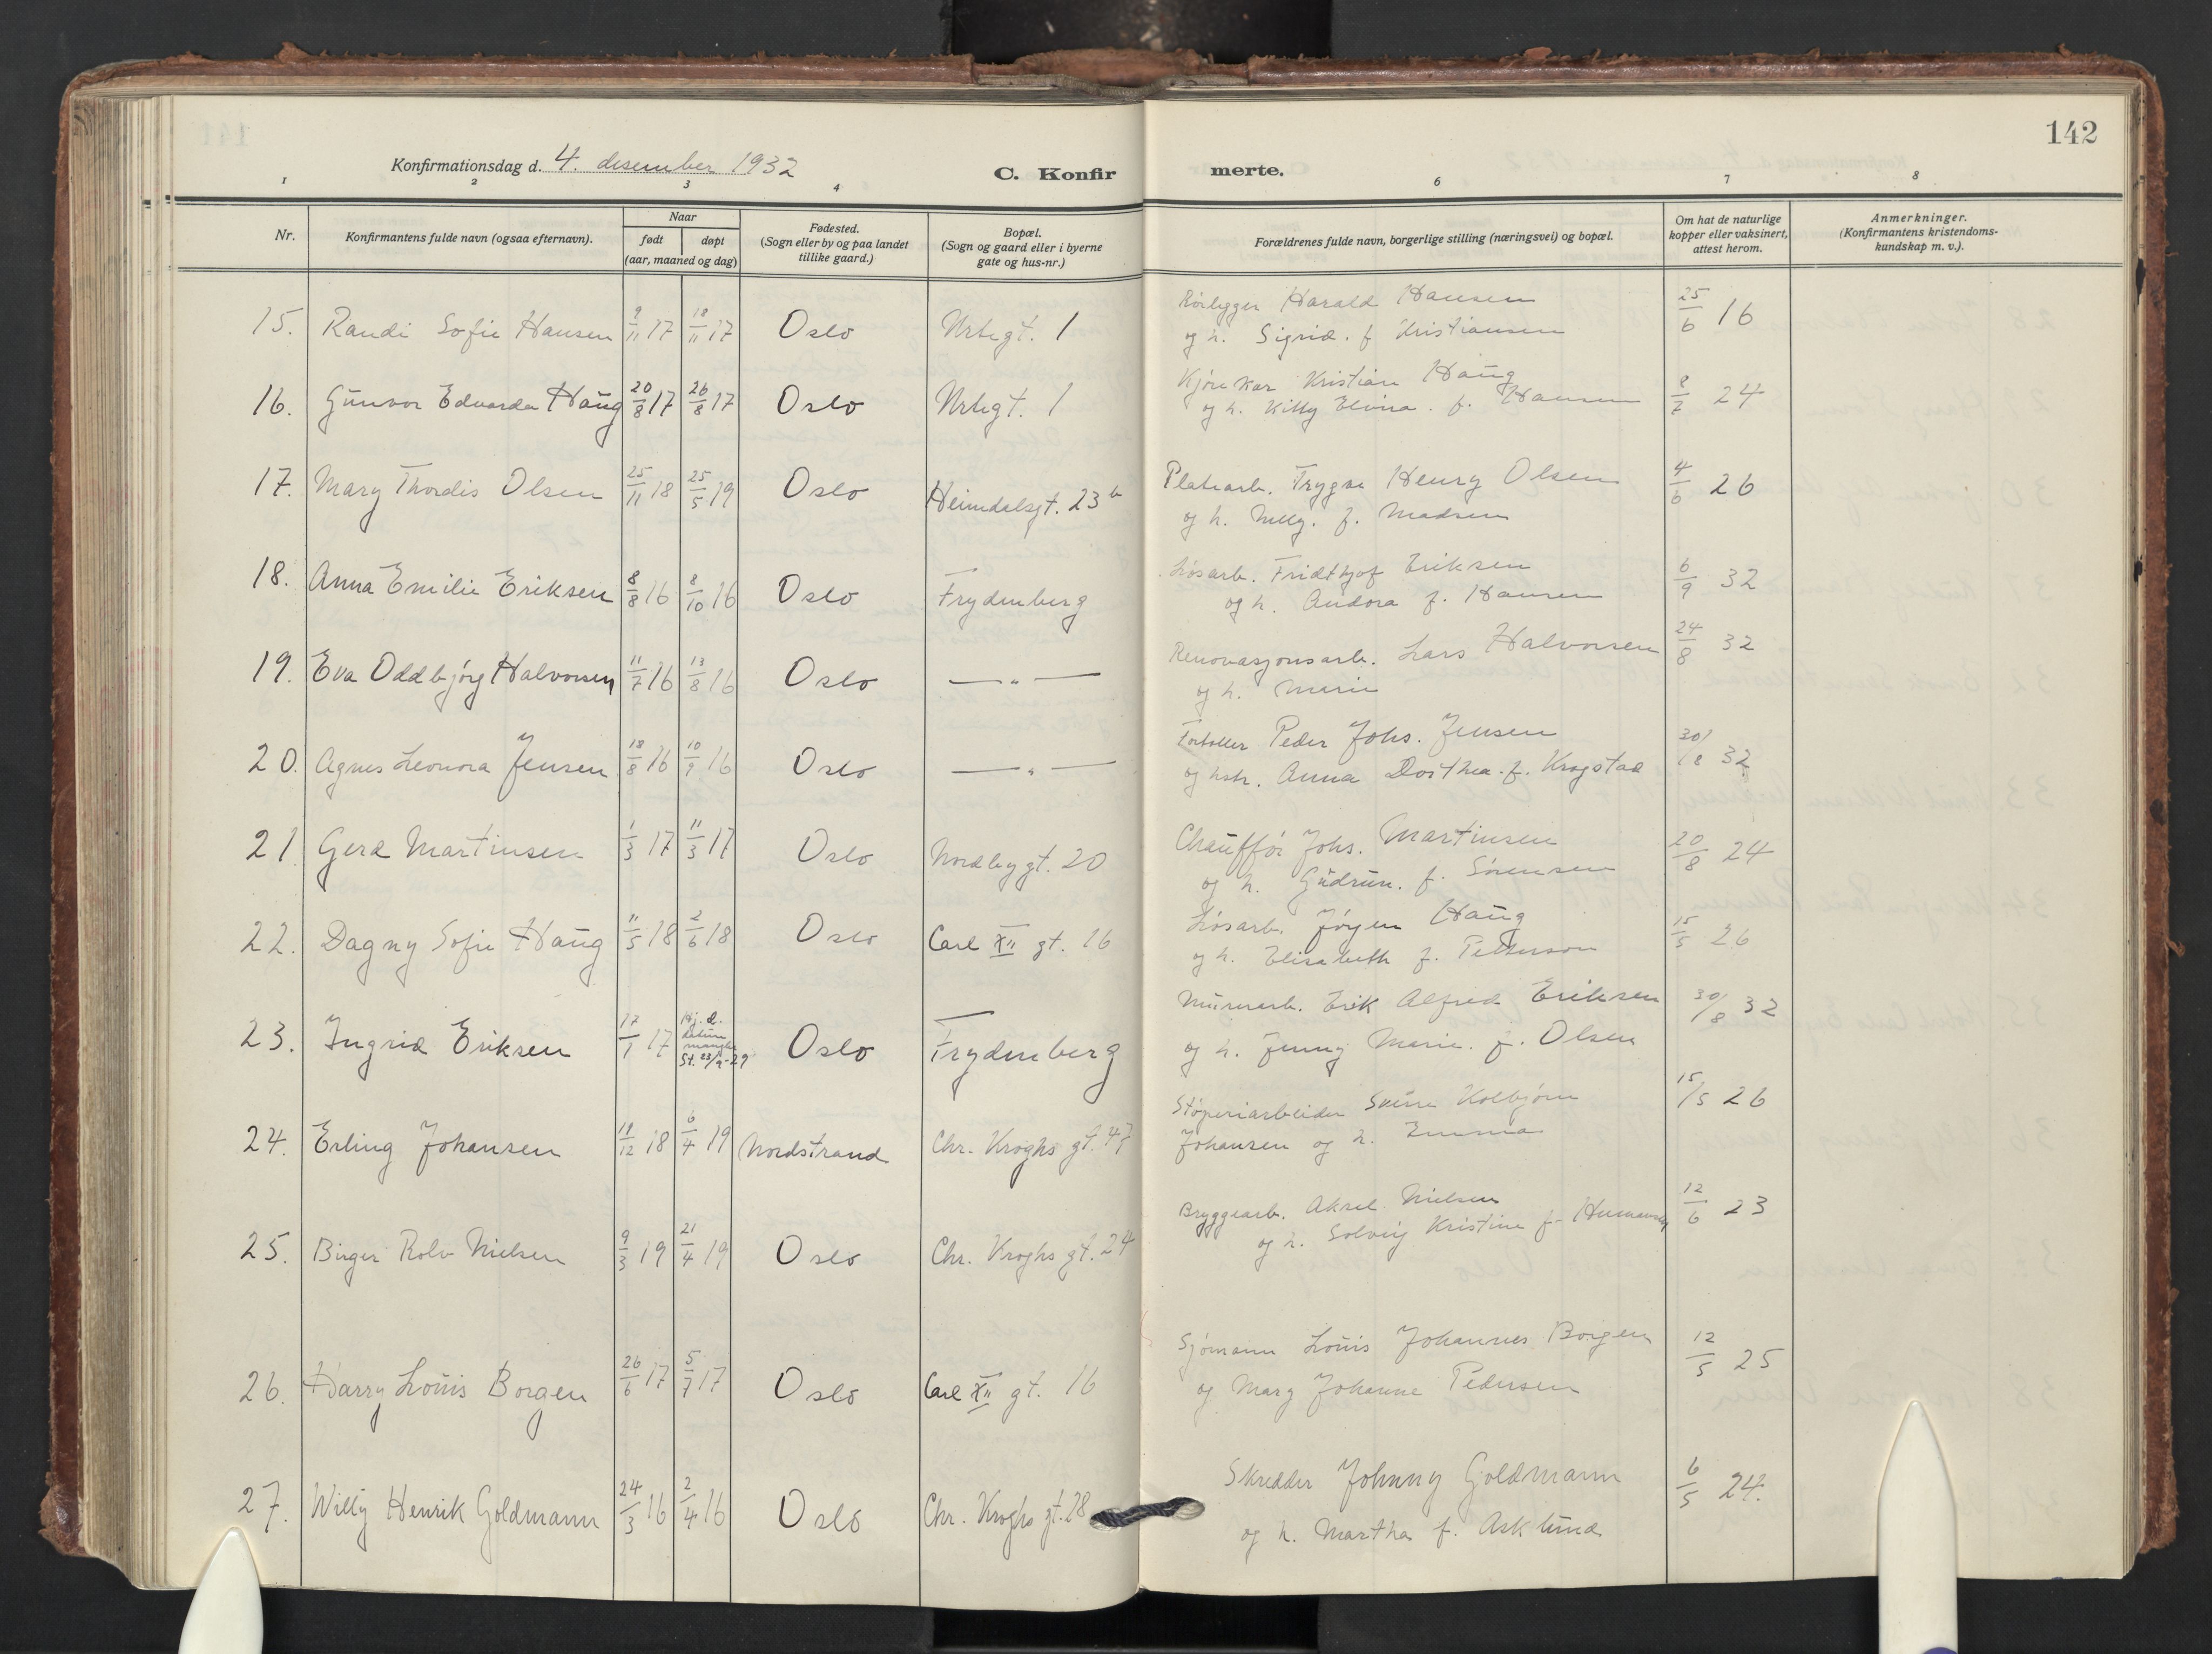 142
Konfirmationsdag d. 4. desember 1932
C. Konfir
merte.
1 2 3 4 6 7 8
Nr.
Konfirmantens fulde navn (ogsaa efternavn).
Naar
født døpt
(aar, maaned og dag)
Fødested.
(Sogn eller by og paa landet
tillike gaard.)
Bopæl.
(Sogn og gaard eller i byerne
gate og hus-nr.)
Forældrenes fulde navn, borgerlige stilling (næringsvei) og bopæl.
Om hat de naturlige
kopper eller vaksinert,
attest herom.
Anmerkninger.
(Konfirmantens kristendoms-
kundskap m. v.).
15. Randi Sofie Hansen 9/11 17 18/11 17 Oslo Urtegt. 1
Rørlegger Harald Hansen 25/6 16
og h. Sigrid. f Kristiansen
16. Gunvor Edvarda Haug 20/8 17 26/8 17 Oslo Urtegt. 1
Kjørekar Kristian Haug 8/7 24
og h. Kitty Elvira. f. Hansen
17. Mary Thordis Olsen 25/11 18 25/5 19 Oslo Heimdalsgt. 23 b
Platearb. Trygve Henry Olsen 4/6 26
og h. Nelly. f. Madsen
18. Anna Emilie Eriksen 8/8 16 8/10 16 Oslo Frydenberg
Løsarb. Fridthjof Eriksen 6/9 32
og h. Andora f. Hansen
19. Eva Oddbjørg Halvorsen 11/7 16 13/8 16 Oslo — " —
Renovasjonsarb. Lars Halvorsen 24/8 32
og h. Marie
20. Agnes Leonora Jensen 18/8 16 10/9 16 Oslo — " —
Peder Johs. Jensen 30/8 32
og hstr. Anna Dorthea. f. Krogstad
21. Gerd Martinsen 1/3 17 11/3 17 Oslo Nordbygt. 20
Chauffør Johs. Martinsen 20/8 24
og h. Gudrun. f. Sørensen
22. Dagny Sofie Haug 11/5 18 2/6 18 Oslo Carl XII gt. 16
Løsarb. Jørgen Haug 15/5 26
og h. Elisabeth f. Petterson
23. Ingrid Eriksen 17/1 17 Hj. d.
datum
mangler
St. 23/9-29 Oslo Frydenberg
Murerarb. Erik Alfred Eriksen 30/8 32
og h. Jenny Marie. f. Olsen
24. Erling Johansen 18/12 18 6/4 19 Nordstrand Chr. Kroghs gt. 47
Støperiarbeider Sverre Kolbjørn 15/5 26
Johansen og h. Emma
25. Birger Rolv Nielsen 9/3 19 21/4 19 Oslo Chr. Kroghs gt. 24
Bryggearb. Aksel Nielsen 12/6 23
og h. Solveig Kristine f. Hermansen
26. Harry Louis Borgen 26/6 17 5/7 17 Oslo Carl XII gt. 16
Sjømann Louis Johannes Borgen 12/5 25
og Mary Johanne Pedersen
27. Willy Henrik Goldmann 24/3 16 2/4 16 Oslo Chr. Kroghs gt. 28
Skredder Johnny Goldmann 6/5 24.
og h. Martha f. Asklund